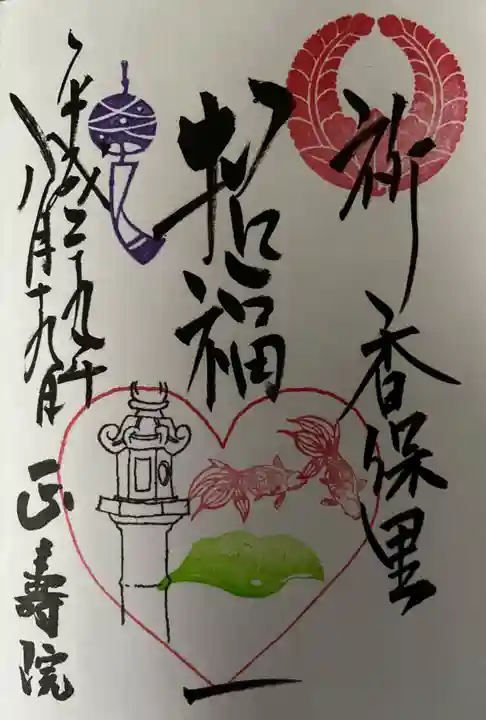 祈 香保里
招福
一
平成二十九年
八月十九日 正壽院